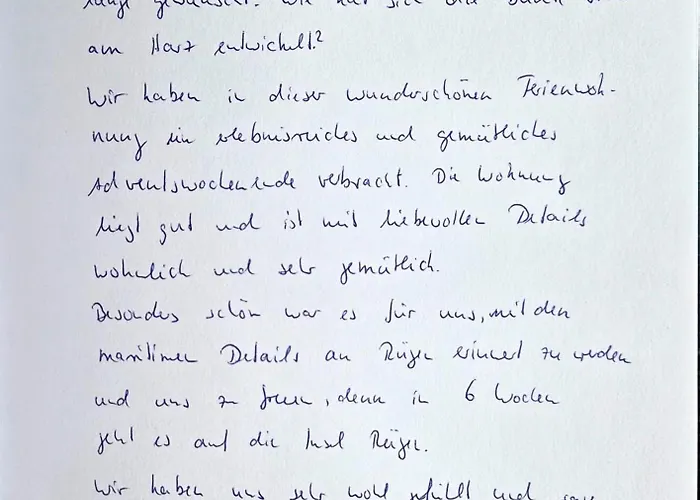 lange gewünscht. Wie hat sich
am Harz entwickelt?
Wir haben in dieser wunderschönen Ferienwoh-
nung ein erlebnisreiches und gemütliches
Adventswochenende verbracht. Die Wohnung
liegt gut und ist mit liebevollen Details
wohnlich und sehr gemütlich.
Besonders schön war es für uns, mit den
maritimen Details an Rügen erinnert zu werden
und uns zu freuen, denn in 6 Wochen
geht es auf die Insel Rügen.
Wir haben uns sehr wohl gefühlt und